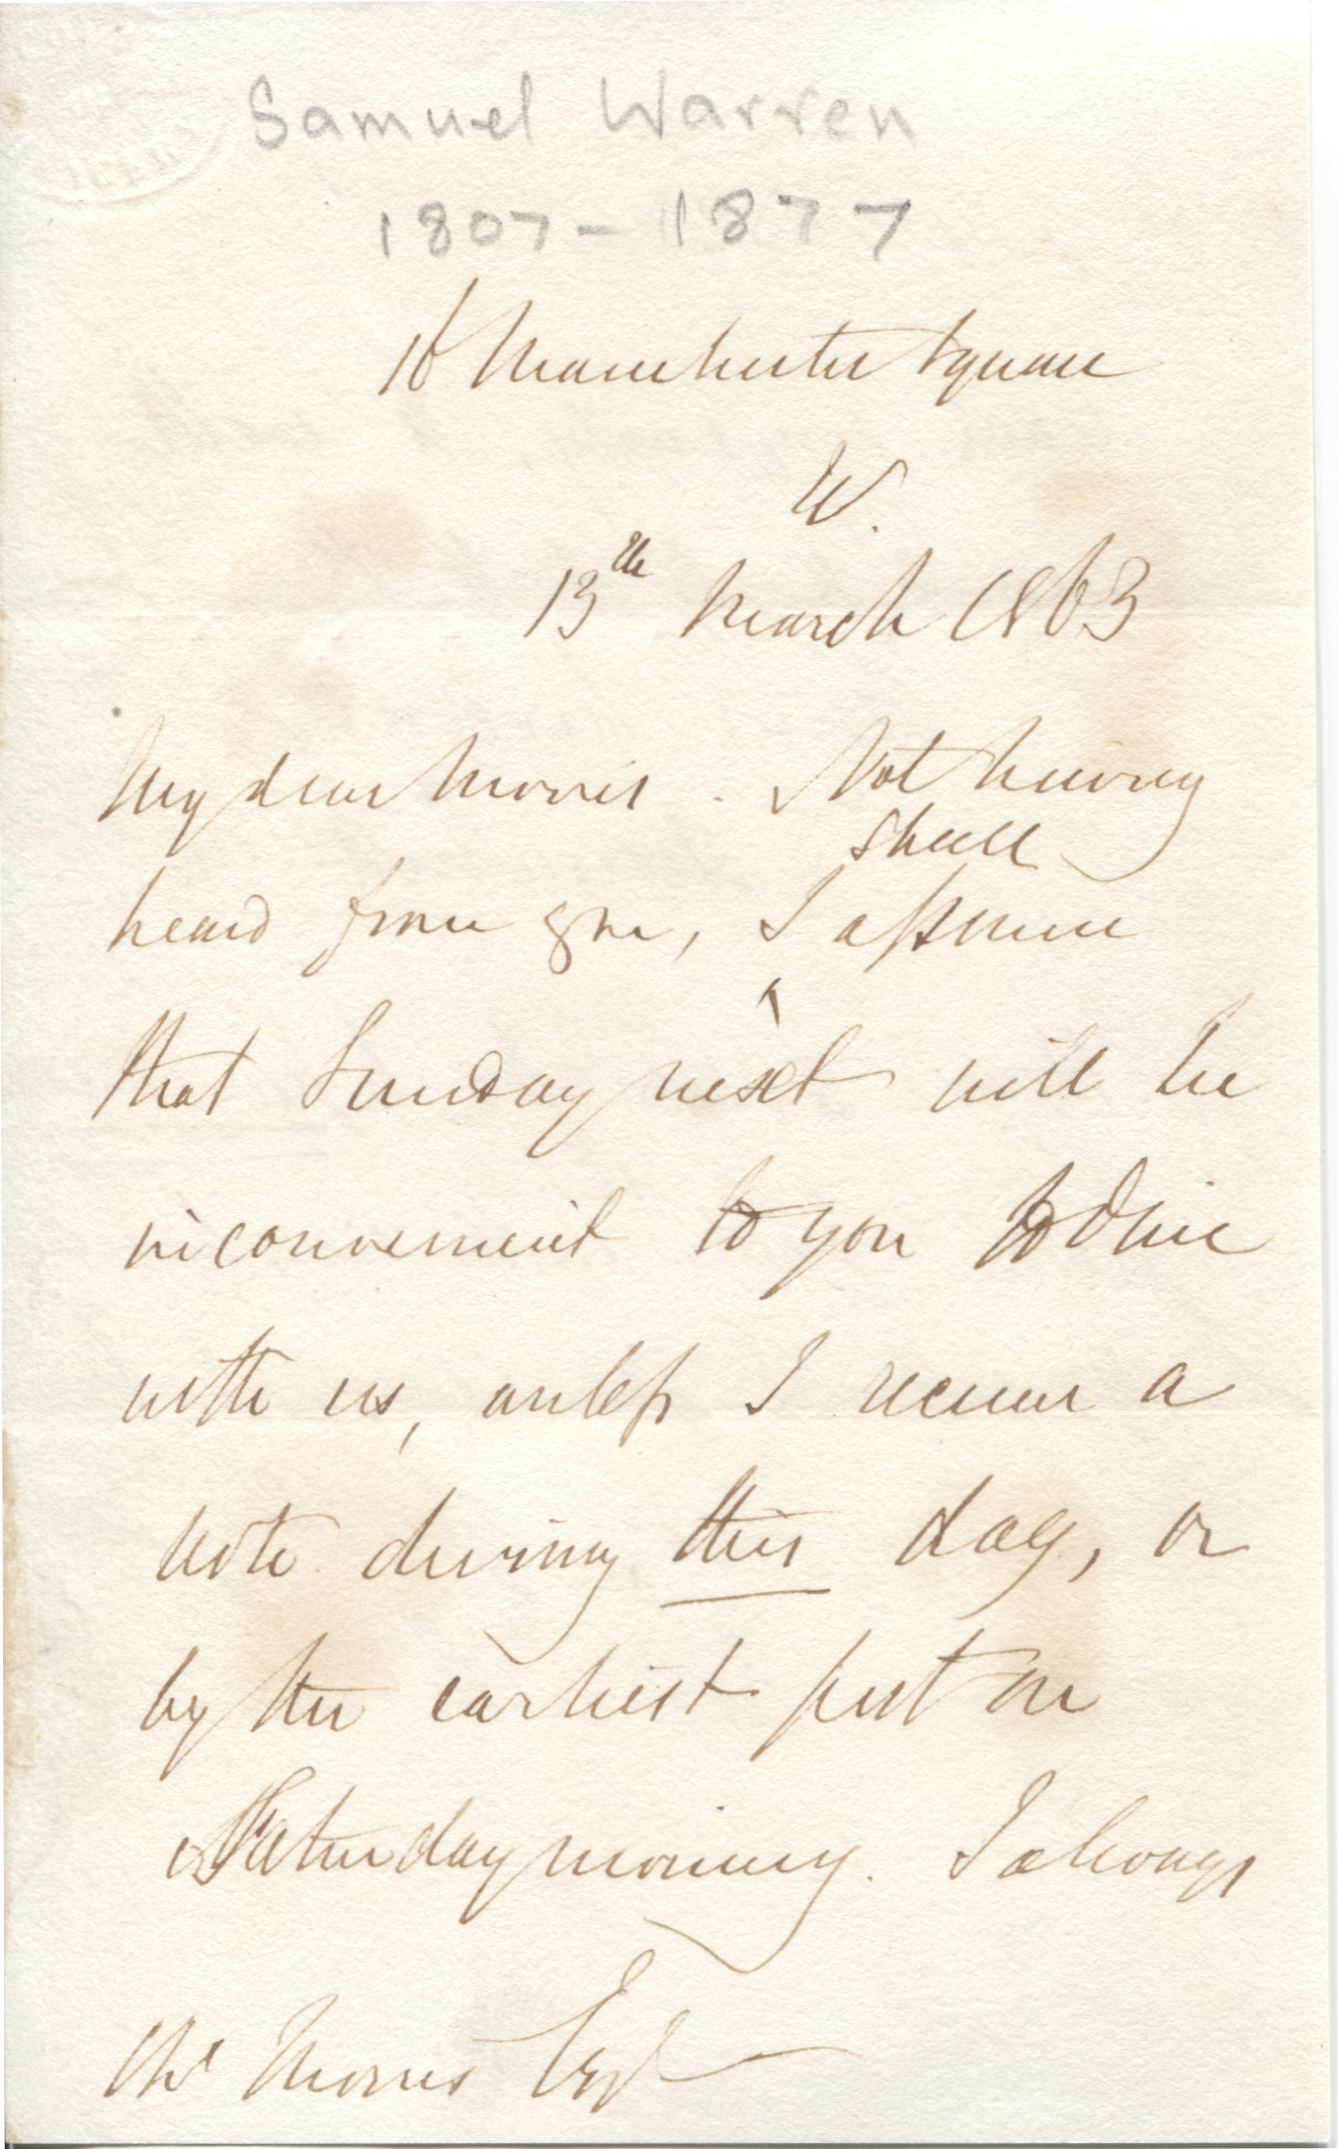 Samuel Warren
1807-1877
16 Manchester Square
W.
13th March 1863
My dear Morris. Not having
shall
heard from you, I assume
that Sunday next will be
inconvenient to you to dine
with us, unless I receive a
note during this day, or
by the earliest post on
Saturday morning. I always
Morris Esq